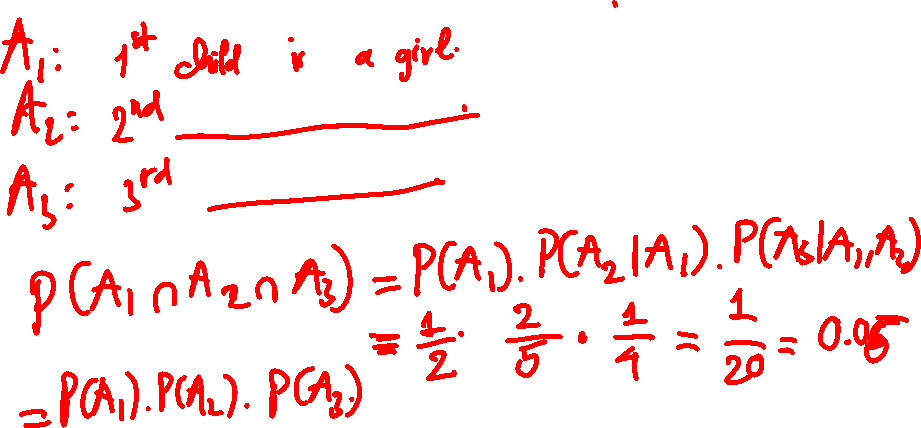 A₁: 1st child is a girl.
A₂: 2nd
A₃: 3rd
P(A₁ ∩ A₂ ∩ A₃) = P(A₁). P(A₂|A₁). P(A₃|A₁, A₂)
= 1/2 . 2/5 . 1/4 = 1/20 = 0.05
= P(A₁). P(A₂). P(A₃)